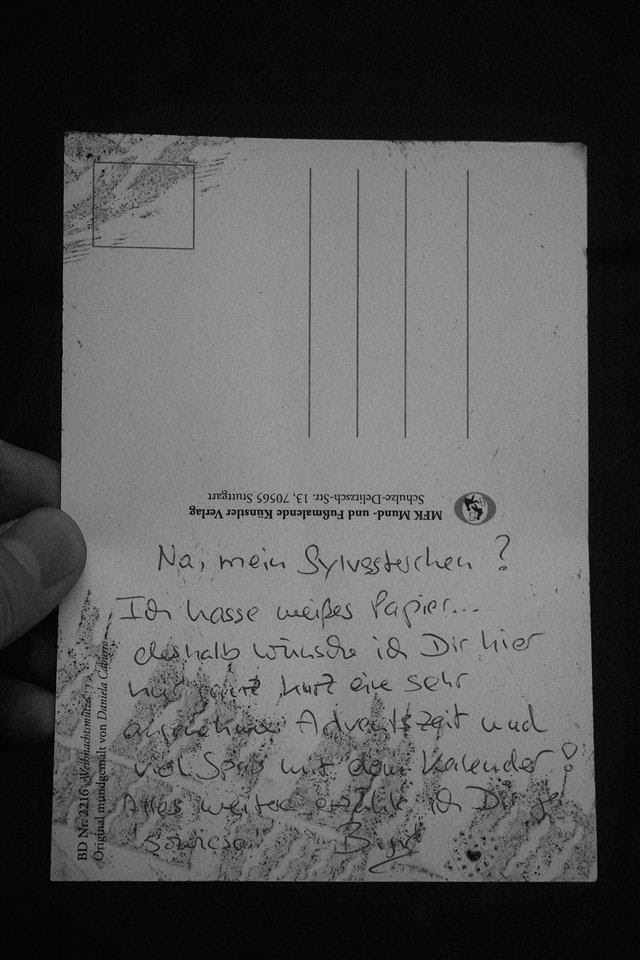 MFK Mund- und Fußmalende Künstler Verlag
Schulze-Delitzsch-Str. 13, 70565 Stuttgart
Na, mein Sylvesterchen?
Ich hasse weißes Papier...
deshalb wünsche ich Dir hier
kurz eine sehr
angenehme Adventszeit und
viel Spaß mit dem Kalender!
Alles weitere erzähle ich Dir je
sowieso
BD Nr. 2216 „Weihnachtsmütze“
Original mundgemalt von Daniela